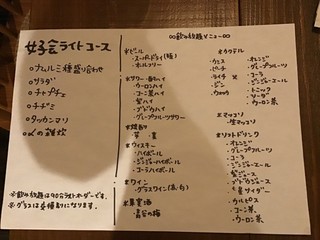 女子会ライトコース
・ナムル三種盛り合わせ
・サラダ
・チャプチェ
・チヂミ
・タッカンマリ
・〆の雑炊
※飲み放題は90分ラストオーダーです。
※グラスは各種類になります。
∞飲み放題メニュー∞
*ビール
・スーパードライ(瓶)
・オールフリー
*サワー・酎ハイ
・ウーロンハイ
・コーン茶ハイ
・紫ハイ
・ブドウハイ
・グレープフルーツサワー
*焼酎
・芋・麦
*ウィスキー
・ハイボール
・ジンジャーハイボール
・コーラハイボール
*ワイン
・グラスワイン(赤・白)
*果実酒
*カクテル
・カシス
・ピーチ
・ライチ
・ジン
・ウォッカ
×
・オレンジ
・グレープフルーツ
・コーラ
・ジンジャーエール
・トニック
・ソーダ
・ウーロン茶
*マッコリ
・生マッコリ
*ソフトドリンク
・オレンジ
・グレープフルーツ
・コーラ
・ジンジャーエール
・ブドウジュース
・カルピス
・コーン茶
・ウーロン茶